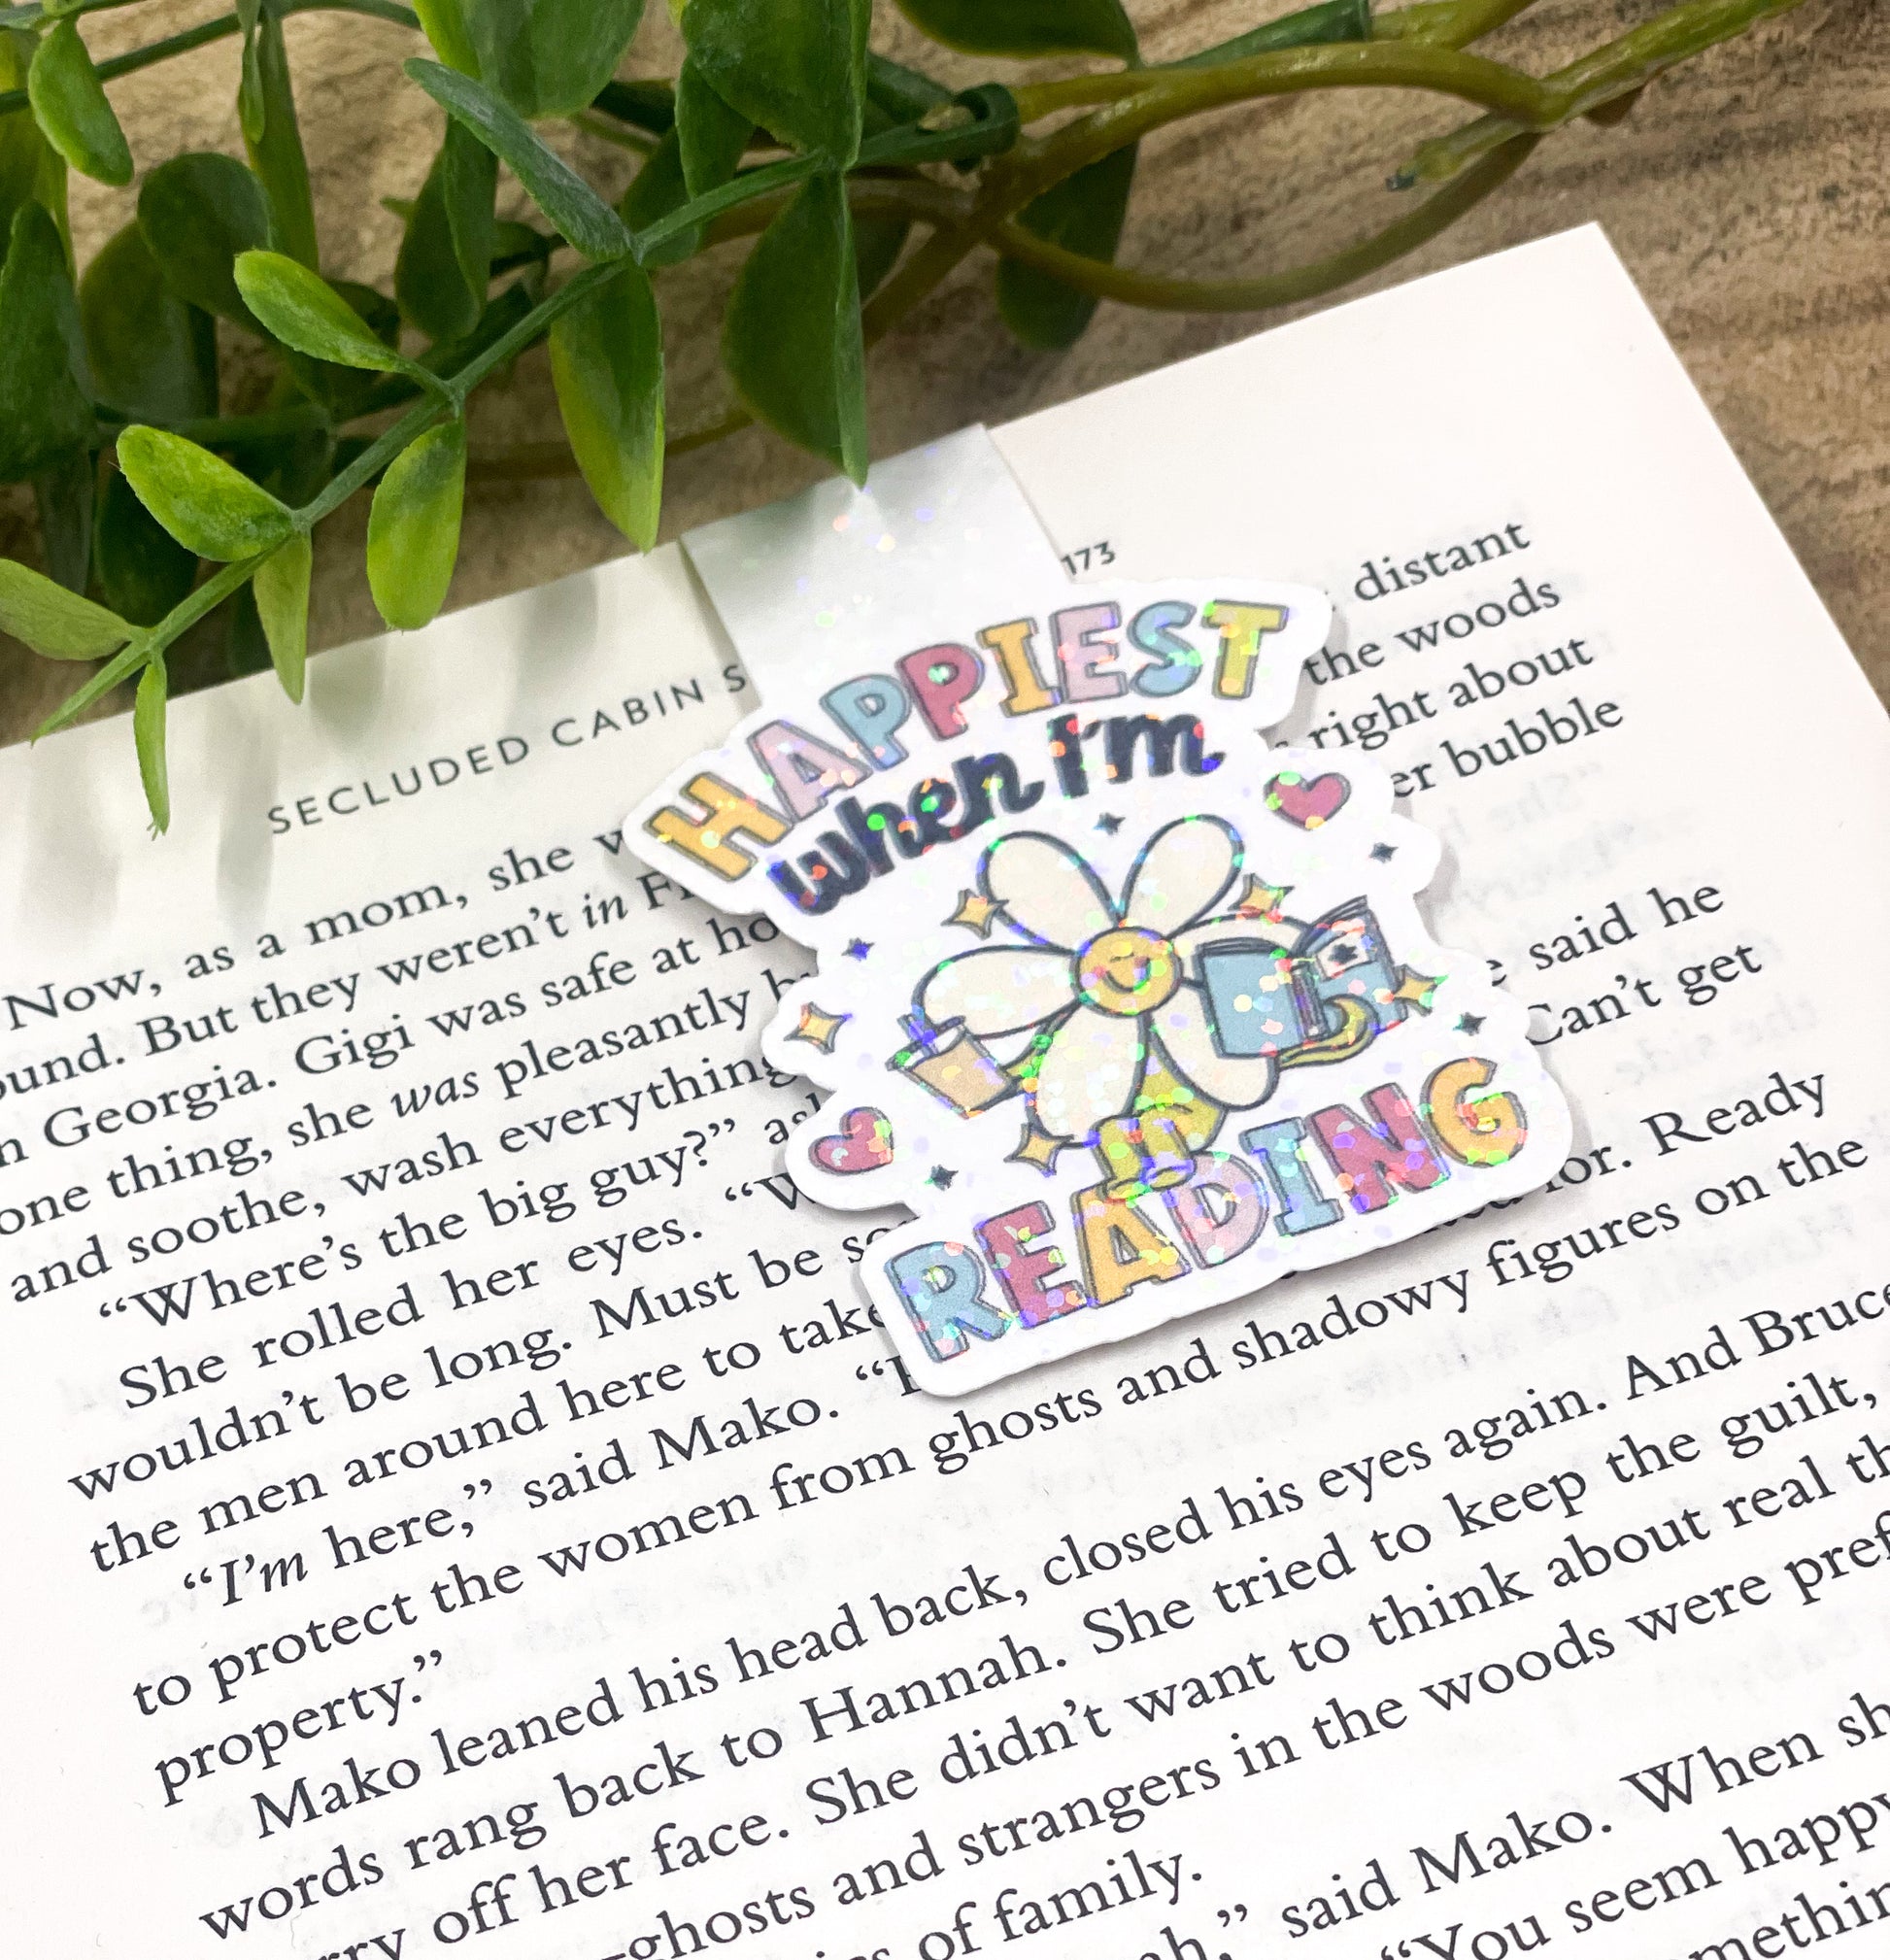 173
SECLUDED CABIN S
HAPPIEST
when I'm
READING
distant
the woods
right about
er bubble
Now, as a mom, she w
ound. But they weren't in F
said he
n Georgia. Gigi was safe at ho
Can't get
one thing, she was pleasantly b
and soothe, wash everything
or. Ready
"Where's the big guy?" as
She rolled her eyes. "W
wouldn't be long. Must be so
the men around here to take
"I'm here," said Mako. "
to protect the women from ghosts and shadowy figures on the
property."
Mako leaned his head back, closed his eyes again. And Bruce
words rang back to Hannah. She tried to keep the guilt,
ry off her face. She didn't want to think about real th
ghosts and strangers in the woods were pref
of family.
ah," said Mako. When sh
"You seem happy
methin